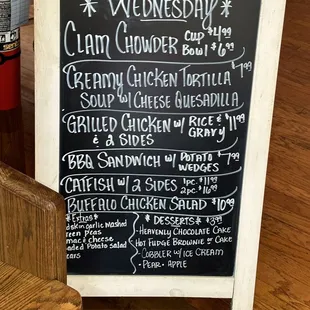 * WEDNESDAY *
CLAM CHOWDER CUP $4.99
BOWL $6.99
CREAMY CHICKEN TORTILLA $7.99
SOUP W/ CHEESE QUESADILLA
GRILLED CHICKEN W/ RICE & $11.99
GRAVY
& 2 SIDES
BBQ SANDWICH W/ POTATO $7.99
WEDGES
CATFISH W/ 2 SIDES 1PC. $11.99
2PC. $16.99
BUFFALO CHICKEN SALAD $10.99
* Extras *
dskin garlic mashed
reen peas
mac & cheese
aded Potato salad
ears
* DESSERTS * $3.99
- HEAVENLY CHOCOLATE CAKE
- HOT FUDGE BROWNIE OR CAKE
- COBBLER W/ ICE CREAM
- PEAR - APPLE